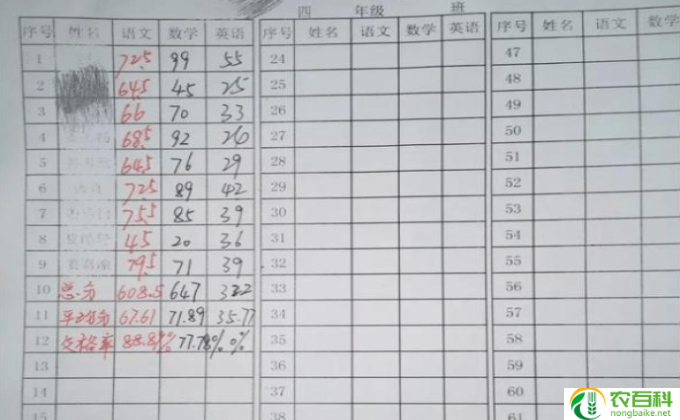 四 年级 班
序号 姓名 语文 数学 英语 序号 姓名 语文 数学 英语 序号 姓名 语文 数学
1 72.5 99 55 24 47
2 64.5 45 25 25 48
3 66 70 33 26 49
4 68.5 92 26 27 50
5 64.5 76 29 28 51
6 72.5 89 42 29 52
7 75.5 85 39 30 53
8 45 20 36 31 54
9 79.5 71 39 32 55
10 总分 608.5 647 322 33 56
11 平均分 67.61 71.89 35.77 34 57
12 及格率 88.89% 77.78% 0% 35 58
13 36 59
14 37 60
15 38 61
农百科
nongbaike.net